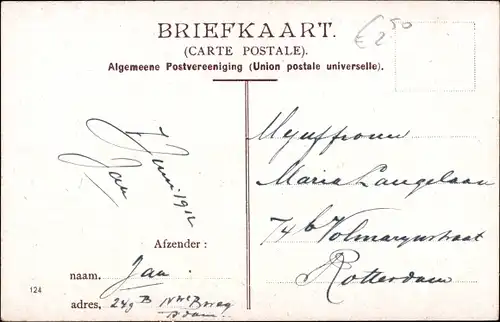 BRIEFKAART.
(CARTE POSTALE).
€ 2,50
Algemeene Postvereeniging (Union postale universelle).
7 Juni 1912
Jan
Mejuffrouw
Maria Langelaan
74b Volmarynstraat
Rotterdam
Afzender :
naam. Jan.
124
adres, 249 B